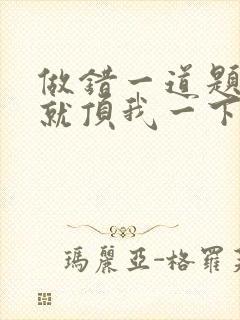 做錯一道題
就頂我一下
瑪麗亞-格羅